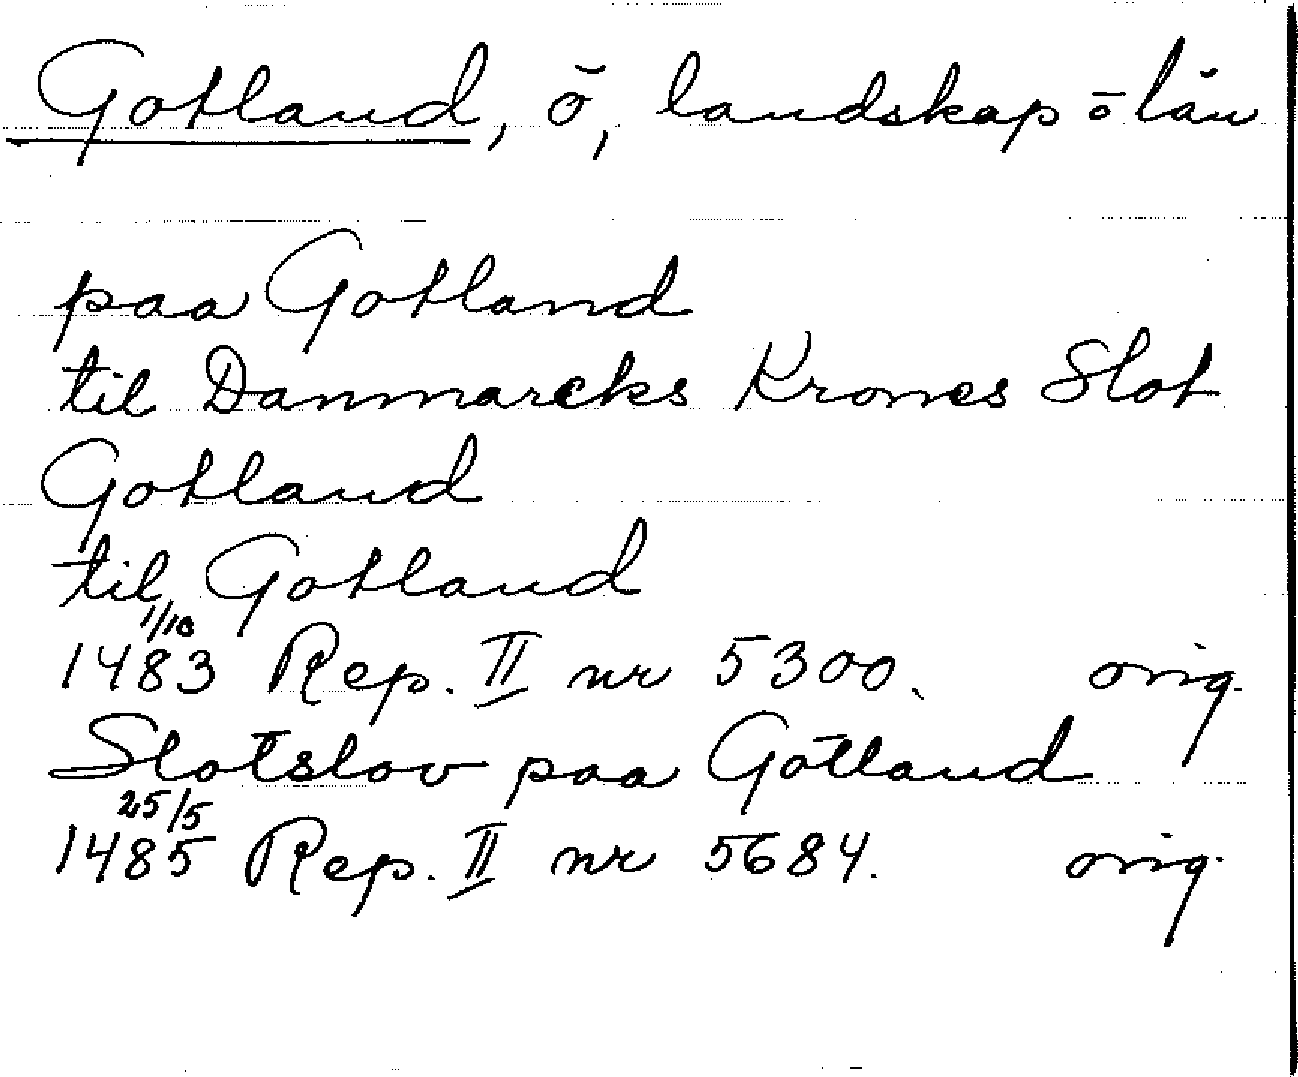 Gotland, ö, landskap o län
paa Gotland
til Danmarcks Krones Slot
Gotland
til Gotland
1/10
1483 Rep. II nr 5300. orig.
Slotslov paa Gotland
25/5
1485 Rep. II nr 5684. orig.